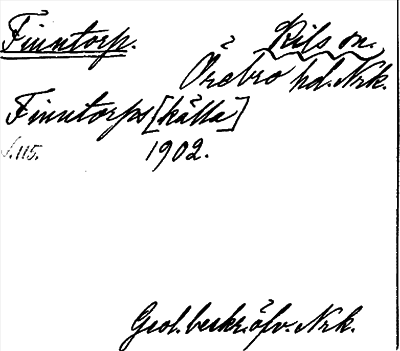 Finntorp. Kils sn.
Örebro hd. Nrk.
Finntorps [källa]
s. 115. 1902.
Geol. beskr. öfv. Nrk.